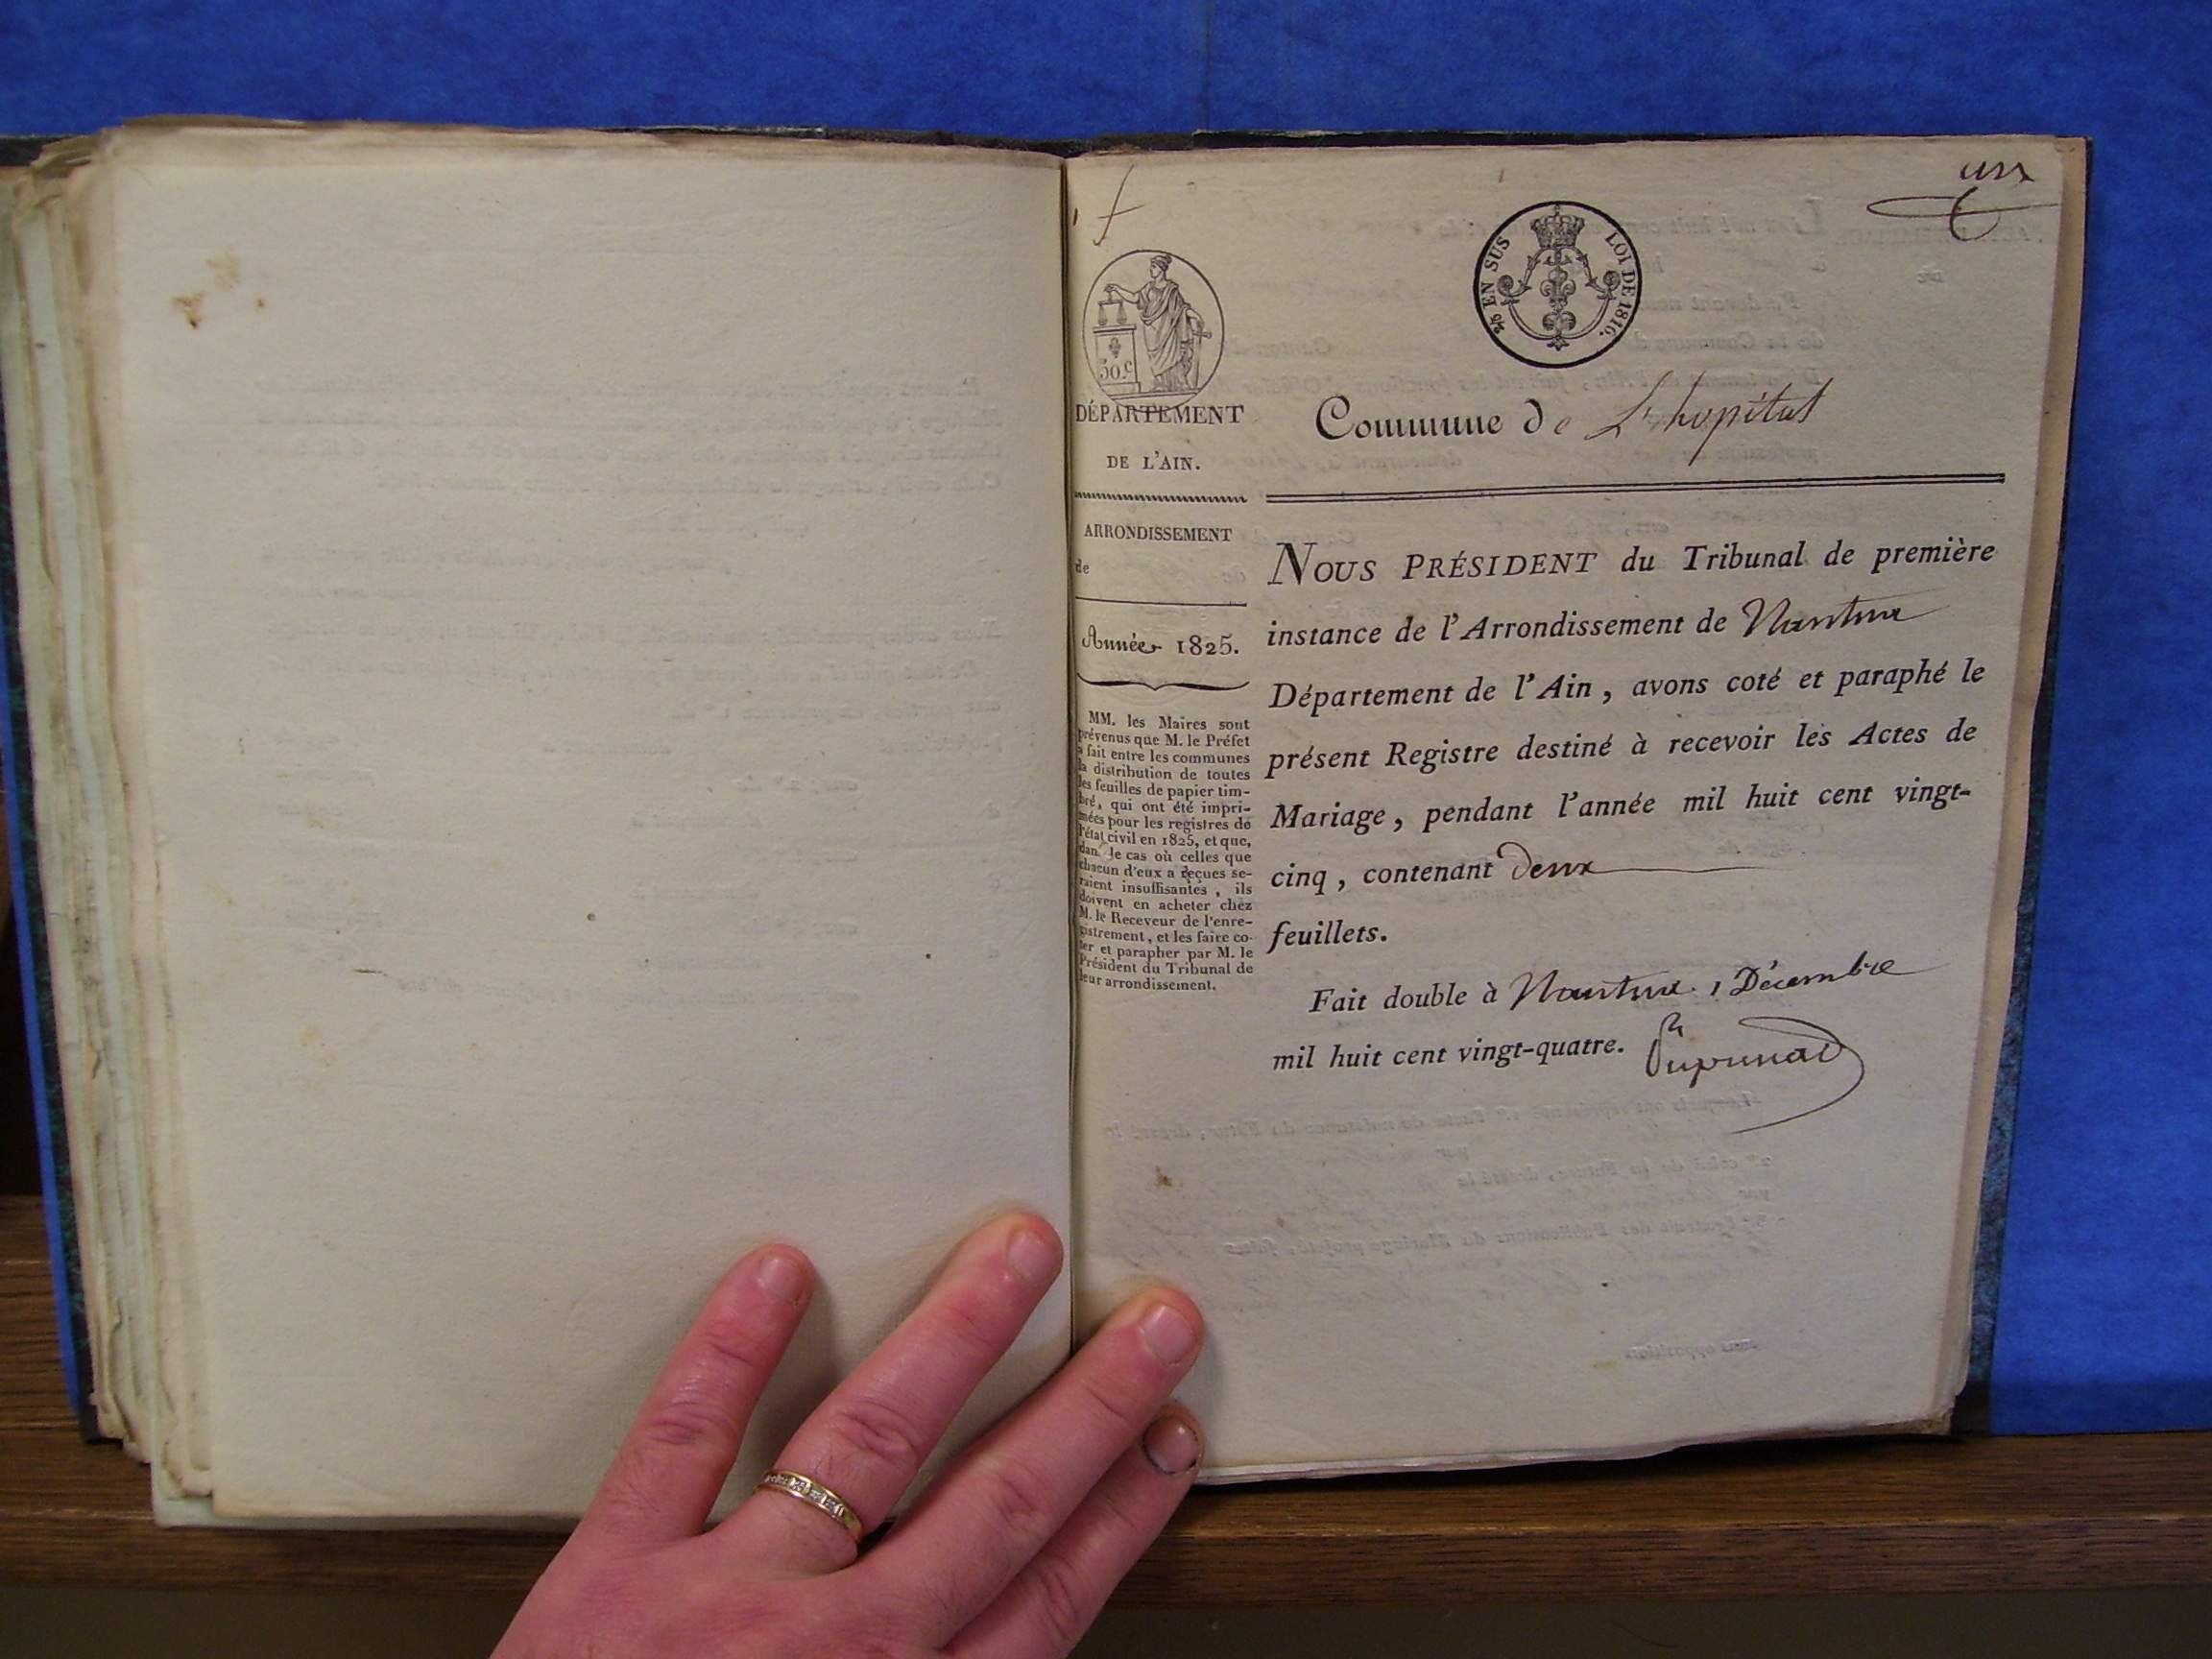 un
2/5 EN SUS LOI DE 1816.
50.c
DÉPARTEMENT
DE L'AIN.
Commune de L'hopital
ARRONDISSEMENT
de
Année 1825.
MM. les Maires sont
prévenus que M. le Préfet
a fait entre les communes
la distribution de toutes
les feuilles de papier tim-
bré, qui ont été impri-
mées pour les registres de
l'état civil en 1825, et que,
dans le cas où celles que
chacun d'eux a reçues se-
raient insuffisantes, ils
doivent en acheter chez
M. le Receveur de l'enre-
gistrement, et les faire co-
ter et parapher par M. le
Président du Tribunal de
leur arrondissement.
NOUS PRÉSIDENT du Tribunal de première
instance de l'Arrondissement de Nantua
Département de l'Ain, avons coté et paraphé le
présent Registre destiné à recevoir les Actes de
Mariage, pendant l'année mil huit cent vingt-
cinq, contenant deux
feuillets.
Fait double à Nantua. 1 Décembre
mil huit cent vingt-quatre.